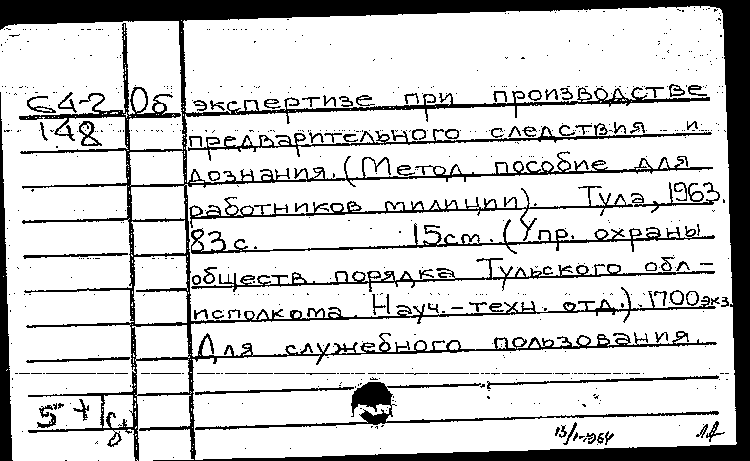 64-2 Об экспертизе при производстве
148 предварительного следствия и
дознания. (Метод. пособие для
работников милиции). Тула, 1963.
83 с. 15 см. (Упр. охраны
обществ. порядка Тульского обл-
исполкома. Науч.-техн. отд.). 1700 экз.
Для служебного пользования.
5 +
13/I-1964